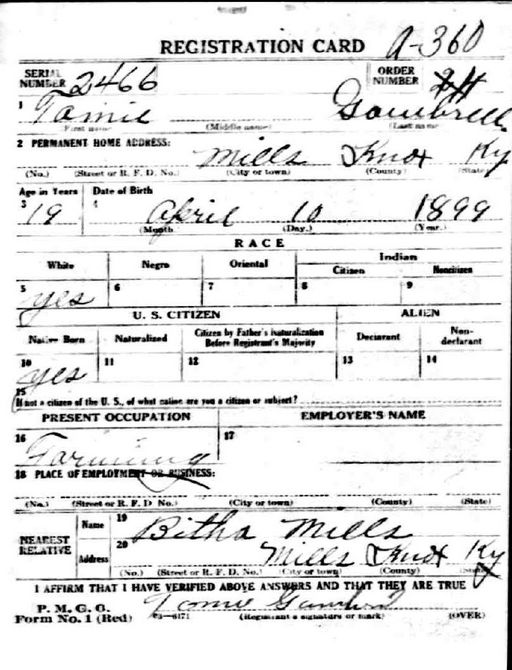 REGISTRATION CARD A-360
SERIAL NUMBER 2466 ORDER NUMBER
1 Tomie Gambrell
First name (Middle name) (Last name)
2 PERMANENT HOME ADDRESS:
Mills Knox Ky
(No.) (Street or R. F. D. No.) (City or town) (County) (State)
Age in Years Date of Birth
3 19 4 April 10 1899
(Month) (Day.) (Year.)
RACE
White Negro Oriental Indian
Citizen Noncitizen
5 yes 6 7 8 9
U. S. CITIZEN ALIEN
Native Born Naturalized Citizen by Father's Naturalization Before Registrant's Majority Declarant Non-declarant
10 yes 11 12 13 14
15
If not a citizen of the U. S., of what nation are you a citizen or subject?
PRESENT OCCUPATION EMPLOYER'S NAME
16 Farming 17
18 PLACE OF EMPLOYMENT OR BUSINESS:
(No.) (Street or R. F. D. No.) (City or town) (County) (State)
NEAREST RELATIVE Name 19 Bitha Mills
Address 20 Mills Knox Ky
(No.) (Street or R. F. D. No.) (City or town) (County) (State)
I AFFIRM THAT I HAVE VERIFIED ABOVE ANSWERS AND THAT THEY ARE TRUE
P. M. G. O. Tomie Gambrel
Form No. 1 (Red) 03-6171 (Registrant's signature or mark) (OVER)